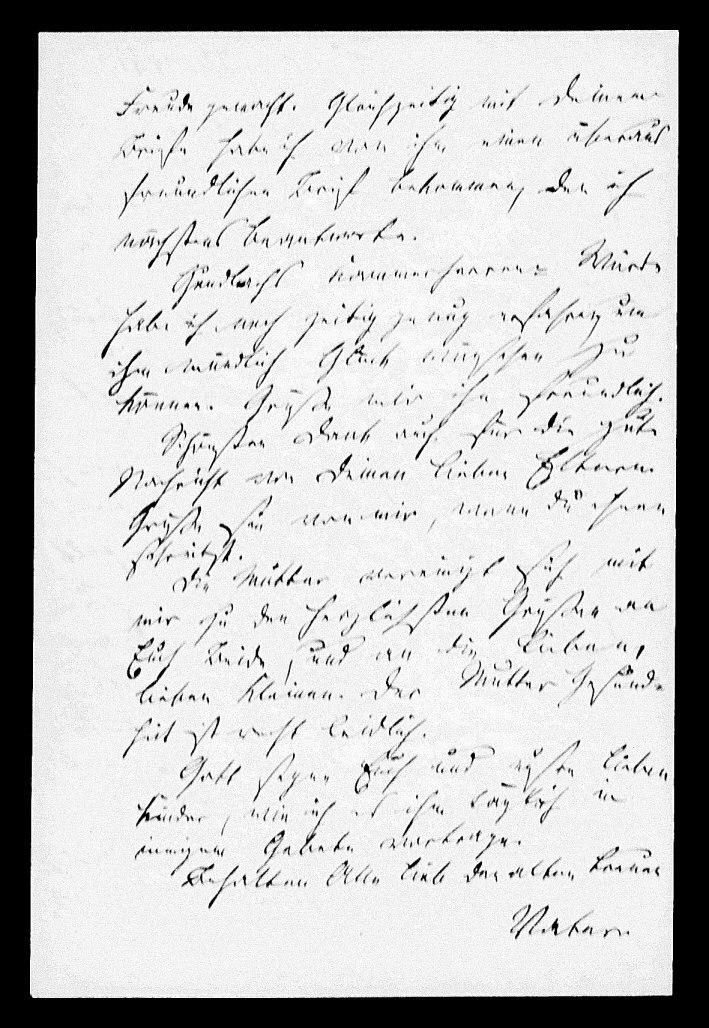 Freude gemacht. Gleichzeitig mit Deinem
Briefe habe ich von ihm einen überaus
freundlichen Brief bekommen, den ich
nächstens beantworte.
Gundlachs Kammerherren-Würde
habe ich noch zeitig genug erfahren, um
ihm mündlich Glück wünschen zu
können. Grüße mir ihn freundlich.
Schönsten Dank auch für die gute
Nachricht von Deinen lieben Eltern.
Grüße sie von mir, wenn Du ihnen
schreibst.
Die Mutter vereinigt sich mit
mir zu den herzlichsten Grüßen an
Euch Beide, und an die lieben,
lieben Kleinen. Der Mutter Gesund-
heit ist recht leidlich.
Gott segne Euch und unsre lieben
Kinder, wie ich es ihm täglich in
innigem Gebete vortrage.
Behalten Alle lieb den alten treuen
Vater.